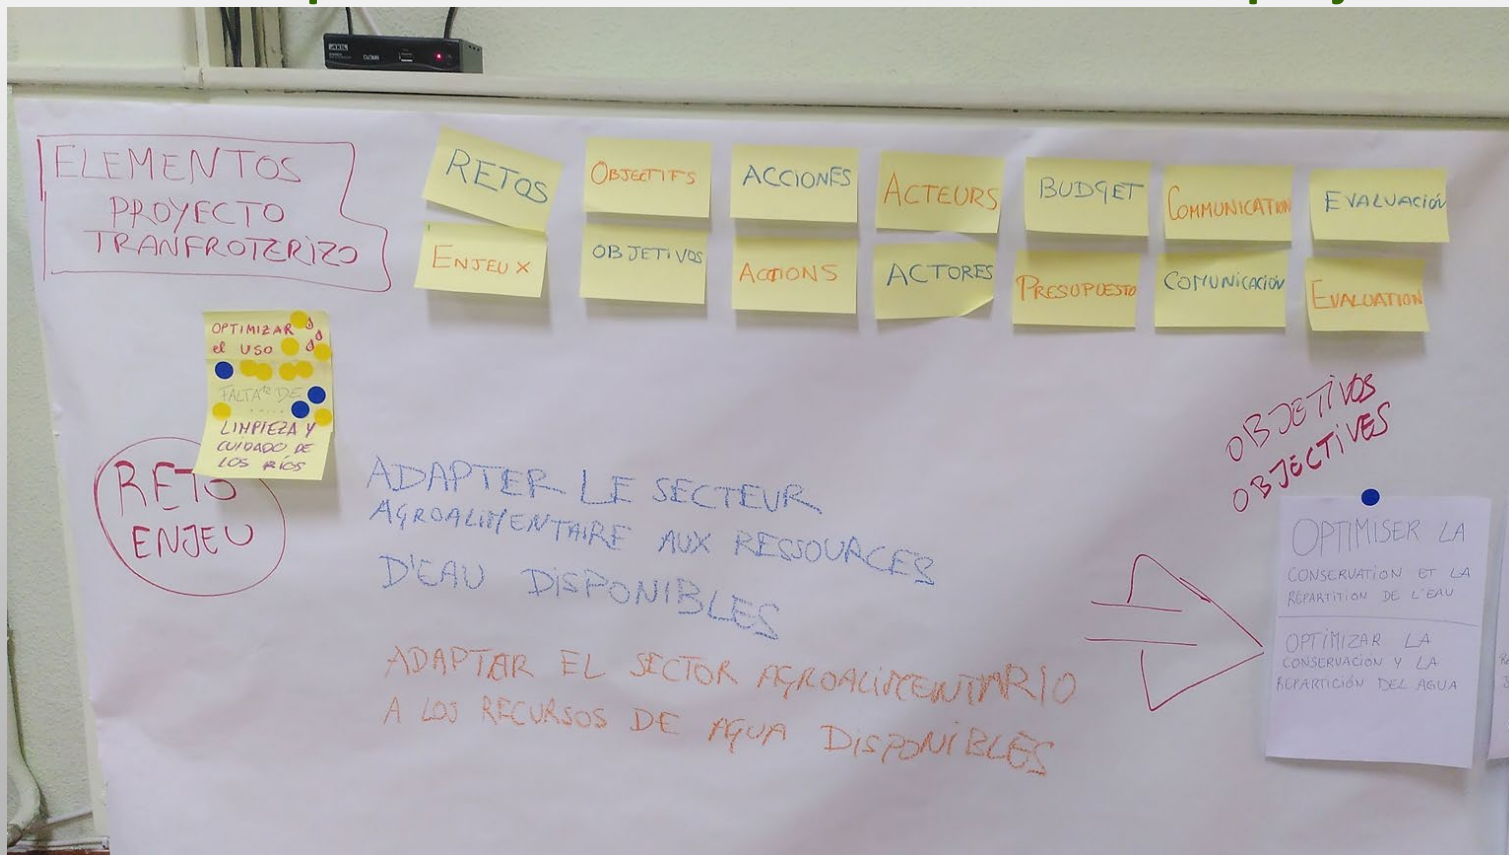 ELEMENTOS
PROYECTO
TRANFROTERIZO
RETOS
OBJECTIFS
ACCIONES
ACTEURS
BUDGET
COMMUNICATION
EVALUACIÓN
ENJEUX
OBJETIVOS
ACTIONS
ACTORES
PRESUPUESTO
COMUNICACIÓN
EVALUATION
OPTIMIZAR
el USO
FALTA DE
LIMPIEZA Y
CUIDADO DE
LOS RÍOS
RETO
ENJEU
ADAPTER LE SECTEUR
AGROALIMENTAIRE AUX RESSOURCES
D'EAU DISPONIBLES
ADAPTAR EL SECTOR AGROALIMENTARIO
A LOS RECURSOS DE AGUA DISPONIBLES
OBJETIVOS
OBJECTIVES
OPTIMISER LA
CONSERVATION ET LA
RÉPARTITION DE L'EAU
OPTIMIZAR LA
CONSERVACIÓN Y LA
REPARTICIÓN DEL AGUA